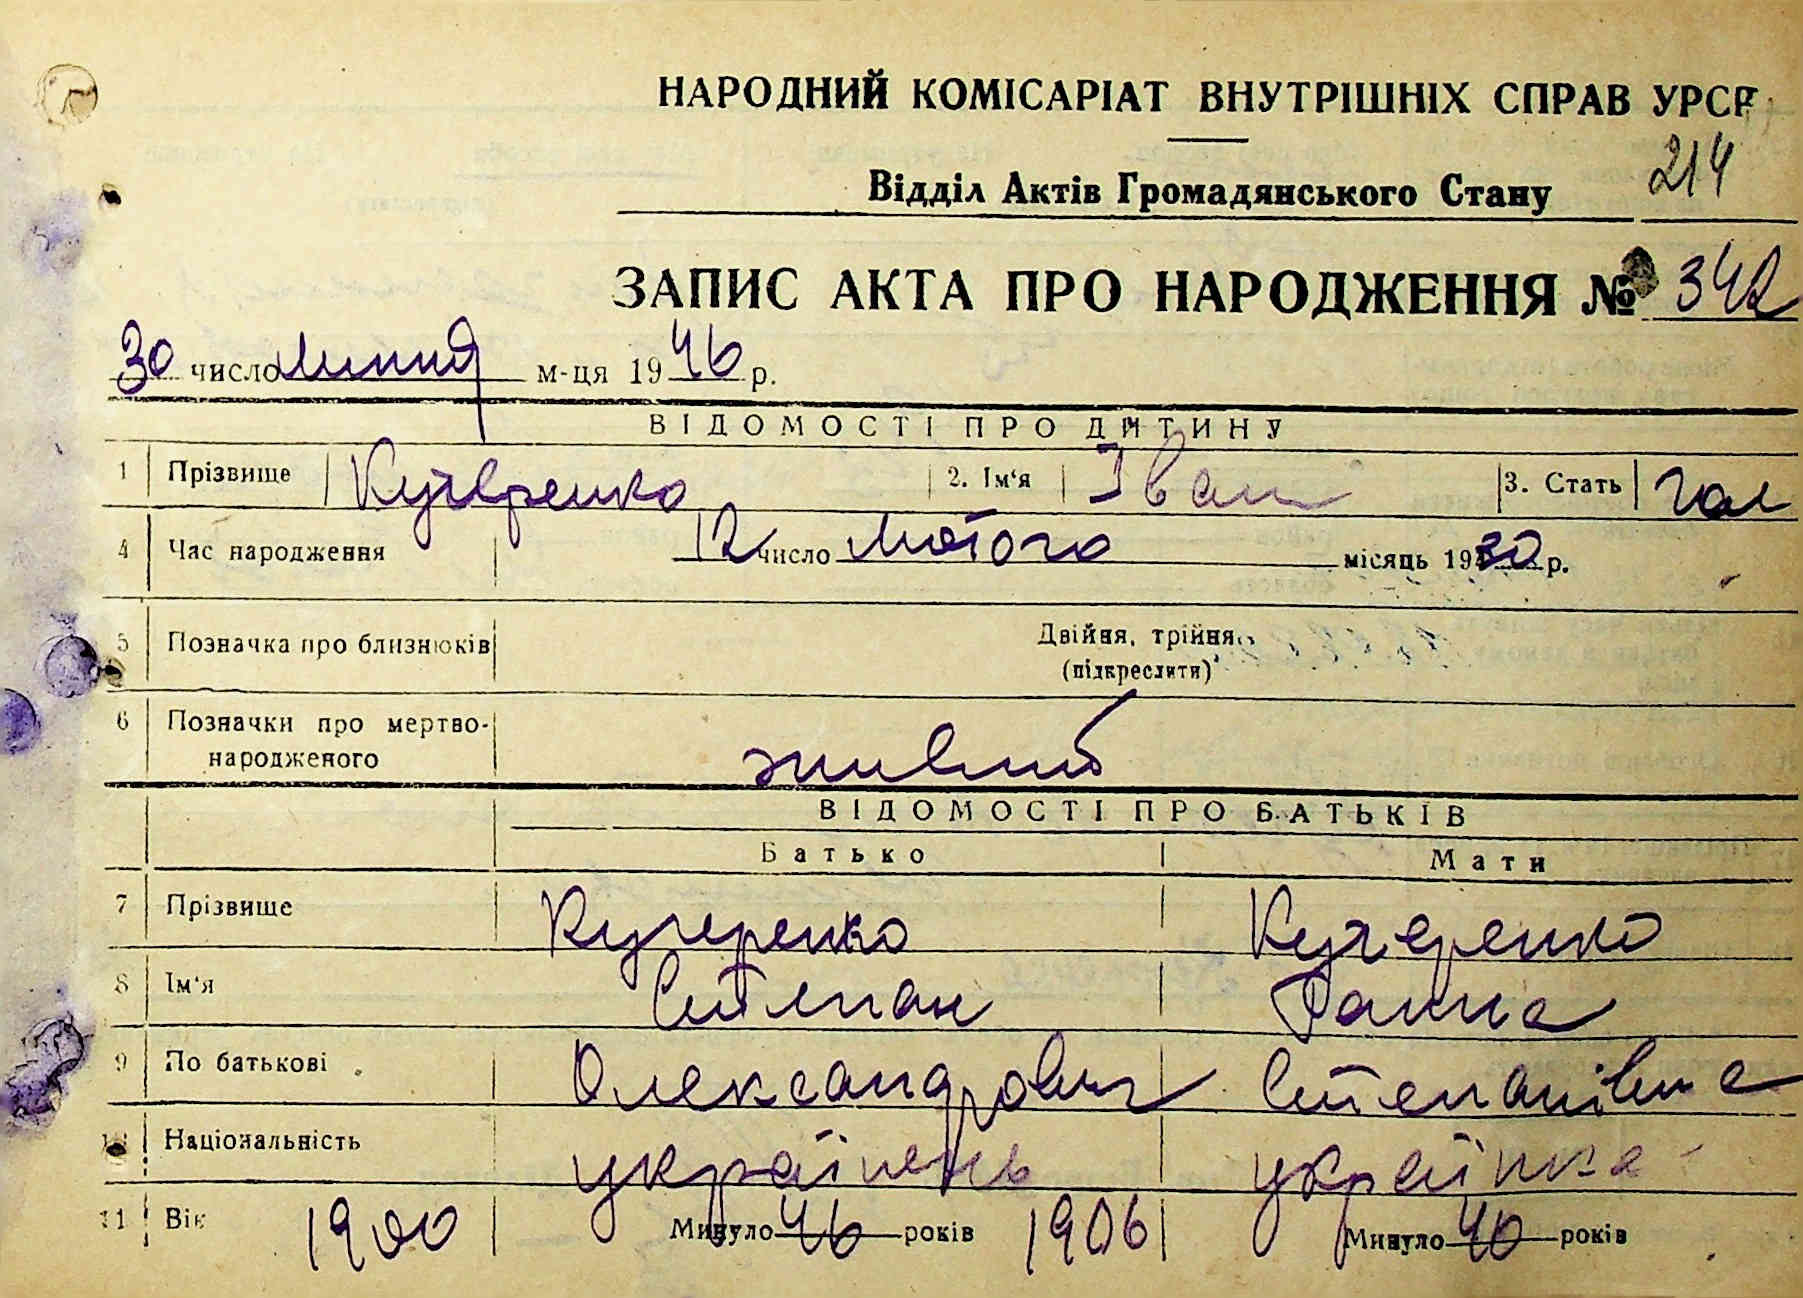 НАРОДНИЙ КОМІСАРІАТ ВНУТРІШНІХ СПРАВ УРСР
214
Відділ Актів Громадянського Стану
ЗАПИС АКТА ПРО НАРОДЖЕННЯ № 342
30 число липня м-ця 1946 р.
ВІДОМОСТІ ПРО ДИТИНУ
1 Прізвище Кучеренко 2. Ім'я Іван 3. Стать чол
4 Час народження 12 число лютого місяць 1930 р.
5 Позначка про близнюків Двійня, трійня
(підкреслити)
6 Позначки про мертво-
народженого живий
ВІДОМОСТІ ПРО БАТЬКІВ
Батько Мати
7 Прізвище Кучеренко Кучеренко
8 Ім'я Степан Ганна
9 По батькові Олександрович Степанівна
10 Національність українець українка
11 Вік 1900 Минуло 46 років 1906 Минуло 40 років